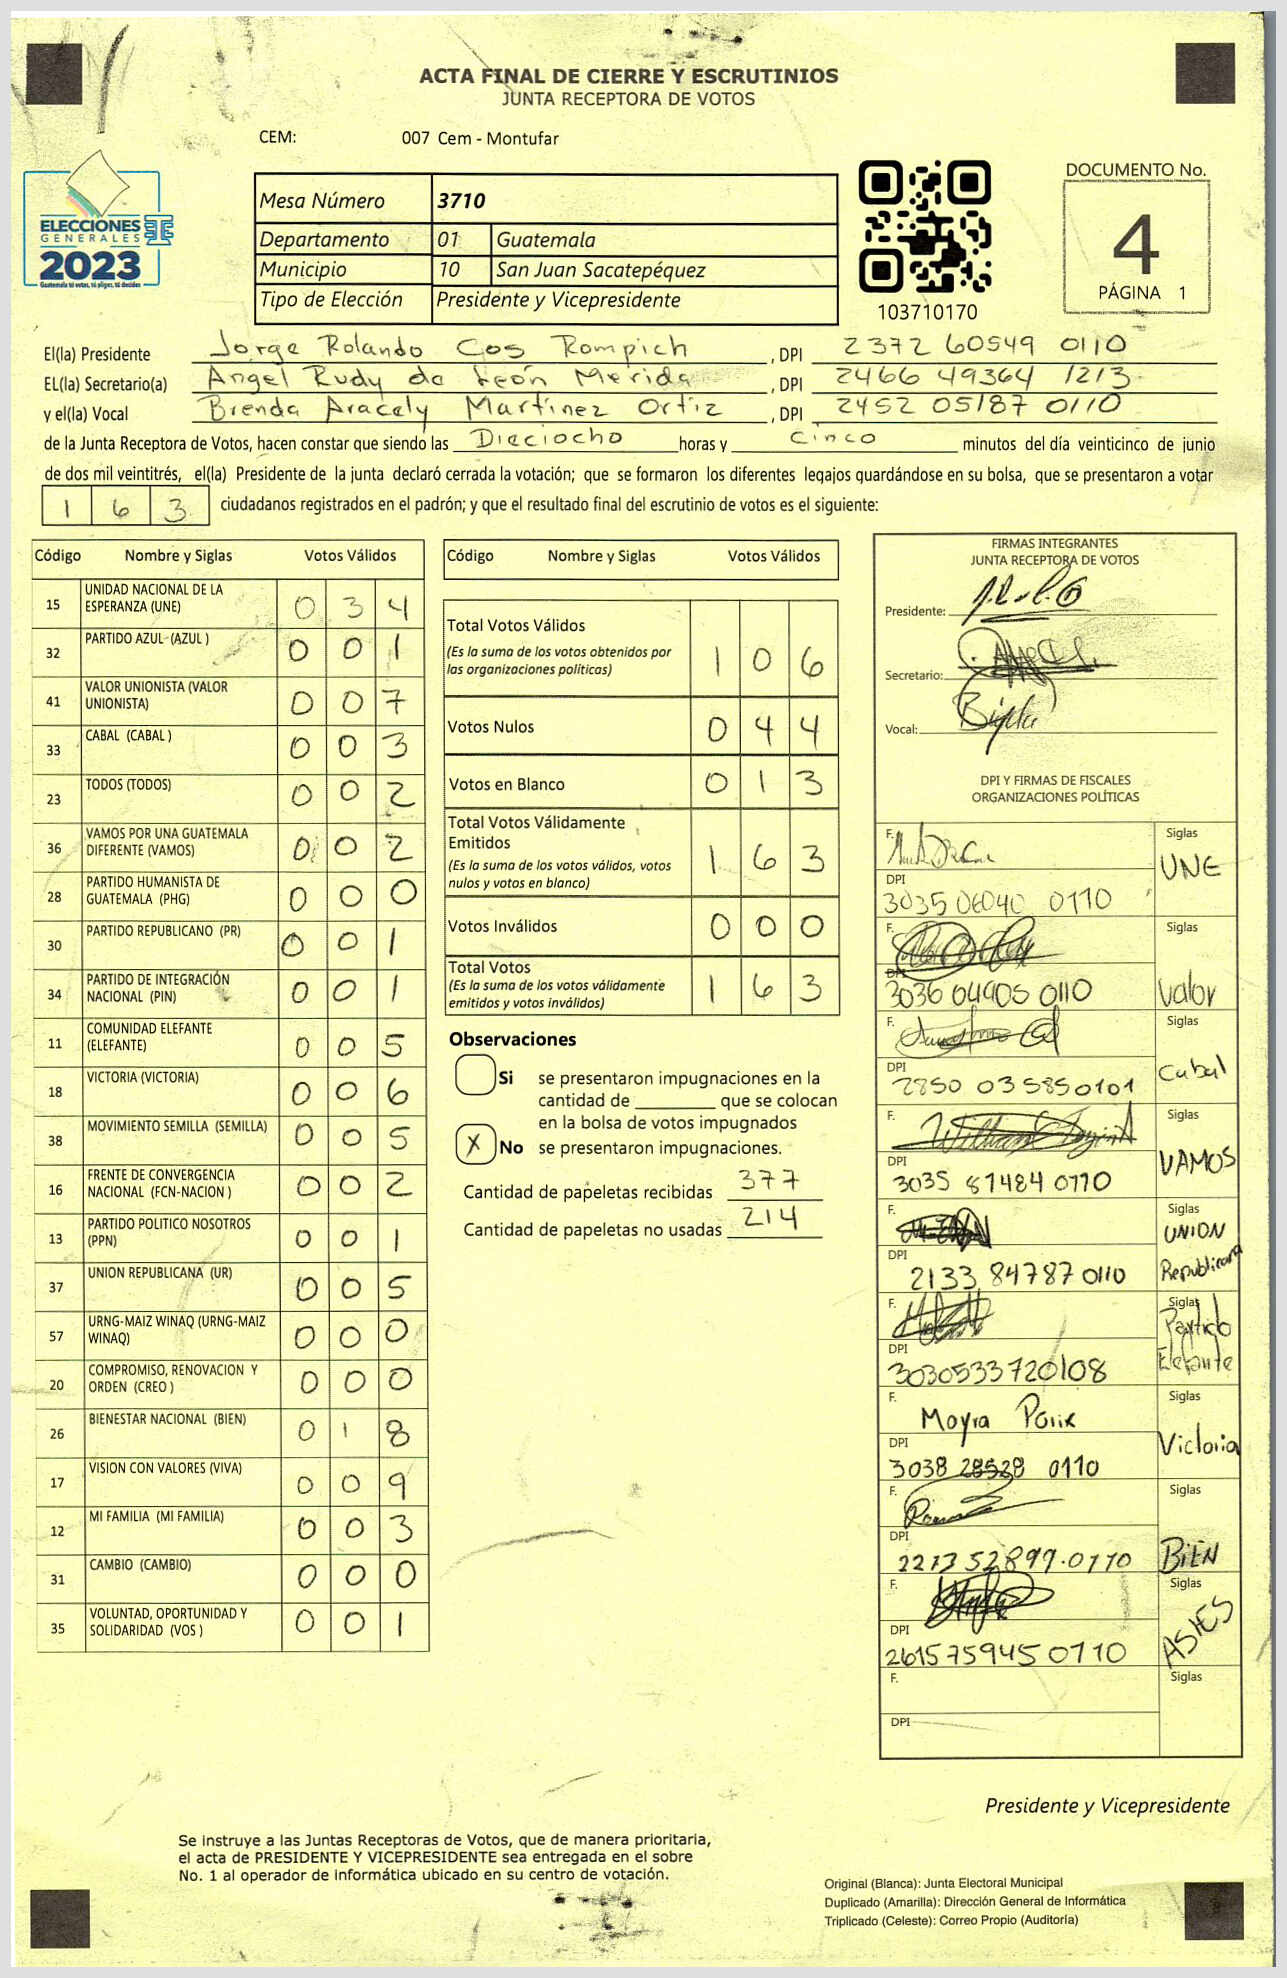 ACTA FINAL DE CIERRE Y ESCRUTINIOS
JUNTA RECEPTORA DE VOTOS
CEM: 007 Cem - Montufar
ELECCIONES
GENERALES
2023
Guatemala tú votas, tú eliges, tú decides
Mesa Número 3710
Departamento 01 Guatemala
Municipio 10 San Juan Sacatepéquez
Tipo de Elección Presidente y Vicepresidente
103710170
DOCUMENTO No.
4
PÁGINA 1
El(la) Presidente Jorge Rolando Cos Rompich, DPI 2372 60549 0110
EL(la) Secretario(a) Angel Rudy de León Merida, DPI 2466 49364 1213
y el(la) Vocal Brenda Aracely Martinez Ortiz, DPI 2452 05187 0110
de la Junta Receptora de Votos, hacen constar que siendo las Dieciocho horas y cinco minutos del día veinticinco de junio
de dos mil veintitrés, el(la) Presidente de la junta declaró cerrada la votación; que se formaron los diferentes legajos guardándose en su bolsa, que se presentaron a votar
163 ciudadanos registrados en el padrón; y que el resultado final del escrutinio de votos es el siguiente:
Código Nombre y Siglas Votos Válidos
15 UNIDAD NACIONAL DE LA ESPERANZA (UNE) 0 3 4
32 PARTIDO AZUL (AZUL ) 0 0 1
41 VALOR UNIONISTA (VALOR UNIONISTA) 0 0 7
33 CABAL (CABAL ) 0 0 3
23 TODOS (TODOS) 0 0 2
36 VAMOS POR UNA GUATEMALA DIFERENTE (VAMOS) 0 0 2
28 PARTIDO HUMANISTA DE GUATEMALA (PHG) 0 0 0
30 PARTIDO REPUBLICANO (PR) 0 0 1
34 PARTIDO DE INTEGRACIÓN NACIONAL (PIN) 0 0 1
11 COMUNIDAD ELEFANTE (ELEFANTE) 0 0 5
18 VICTORIA (VICTORIA) 0 0 6
38 MOVIMIENTO SEMILLA (SEMILLA) 0 0 5
16 FRENTE DE CONVERGENCIA NACIONAL (FCN-NACION ) 0 0 2
13 PARTIDO POLITICO NOSOTROS (PPN) 0 0 1
37 UNION REPUBLICANA (UR) 0 0 5
57 URNG-MAIZ WINAQ (URNG-MAIZ WINAQ) 0 0 0
20 COMPROMISO, RENOVACION Y ORDEN (CREO ) 0 0 0
26 BIENESTAR NACIONAL (BIEN) 0 1 8
17 VISION CON VALORES (VIVA) 0 0 9
12 MI FAMILIA (MI FAMILIA) 0 0 3
31 CAMBIO (CAMBIO) 0 0 0
35 VOLUNTAD, OPORTUNIDAD Y SOLIDARIDAD (VOS ) 0 0 1
Código Nombre y Siglas Votos Válidos
Total Votos Válidos 1 0 6
(Es la suma de los votos obtenidos por
las organizaciones políticas)
Votos Nulos 0 4 4
Votos en Blanco 0 1 3
Total Votos Válidamente
Emitidos 1 6 3
(Es la suma de los votos válidos, votos
nulos y votos en blanco)
Votos Inválidos 0 0 0
Total Votos 1 6 3
(Es la suma de los votos válidamente
emitidos y votos inválidos)
Observaciones
Si se presentaron impugnaciones en la
cantidad de ________ que se colocan
en la bolsa de votos impugnados
X No se presentaron impugnaciones.
Cantidad de papeletas recibidas 377
Cantidad de papeletas no usadas 214
FIRMAS INTEGRANTES
JUNTA RECEPTORA DE VOTOS
Presidente:
Secretario:
Vocal:
DPI Y FIRMAS DE FISCALES
ORGANIZACIONES POLÍTICAS
F. Siglas UNE
DPI 3035 06040 0110
F. Siglas Valor
DPI 3036 04905 0110
F. Siglas Cabal
DPI 2850 035850101
F. Siglas VAMOS
DPI 3035 81484 0110
F. Siglas UNION Republicana
DPI 2133 84787 0110
F. Siglas Partido Elefante
DPI 3030533720108
F. Mayra Siglas Victoria
DPI 3038 28528 0110
F. Siglas BIEN
DPI 2213 52899 0110
F. Siglas ASIES
DPI 2615759450110
F. Siglas
DPI
Presidente y Vicepresidente
Se instruye a las Juntas Receptoras de Votos, que de manera prioritaria,
el acta de PRESIDENTE Y VICEPRESIDENTE sea entregada en el sobre
No. 1 al operador de informática ubicado en su centro de votación.
Original (Blanca): Junta Electoral Municipal
Duplicado (Amarilla): Dirección General de Informática
Triplicado (Celeste): Correo Propio (Auditoría)